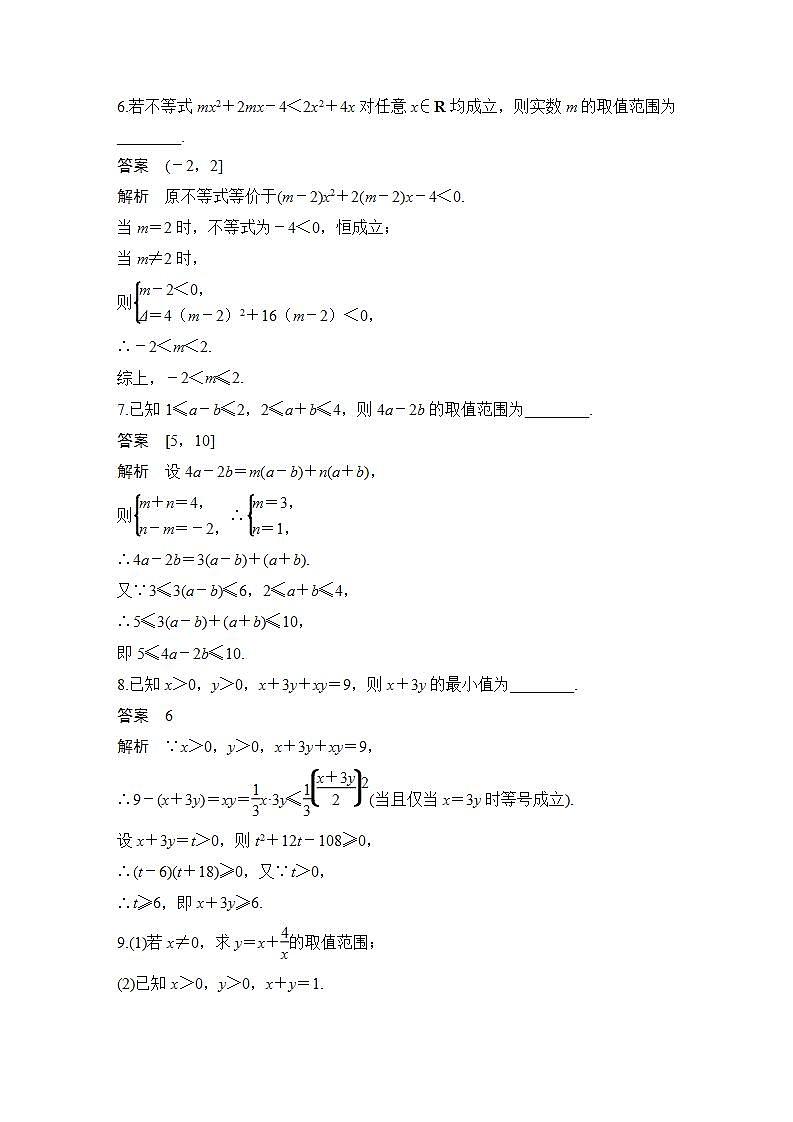 6.若不等式 mx²+2mx-4<2x²+4x 对任意 x∈R 均成立，则实数 m 的取值范围为
________.
答案 (-2，2]
解析 原不等式等价于(m-2)x²+2(m-2)x-4<0.
当 m=2 时，不等式为-4<0，恒成立；
当 m≠2 时，
则{m-2<0，
Δ=4（m-2）²+16（m-2）<0，
∴-2<m<2.
综上，-2<m≤2.
7.已知 1≤a-b≤2，2≤a+b≤4，则 4a-2b 的取值范围为________.
答案 [5，10]
解析 设 4a-2b=m(a-b)+n(a+b)，
则{m+n=4，n-m=-2，∴{m=3，n=1，
∴4a-2b=3(a-b)+(a+b).
又∵3≤3(a-b)≤6，2≤a+b≤4，
∴5≤3(a-b)+(a+b)≤10，
即 5≤4a-2b≤10.
8.已知 x>0，y>0，x+3y+xy=9，则 x+3y 的最小值为________.
答案 6
解析 ∵x>0，y>0，x+3y+xy=9，
∴9-(x+3y)=xy=1/3x·3y≤1/3((x+3y)/2)²(当且仅当 x=3y 时等号成立).
设 x+3y=t>0，则 t²+12t-108≥0，
∴(t-6)(t+18)≥0，又∵t>0，
∴t≥6，即 x+3y≥6.
9.(1)若 x≠0，求 y=x+4/x的取值范围；
(2)已知 x>0，y>0，x+y=1.